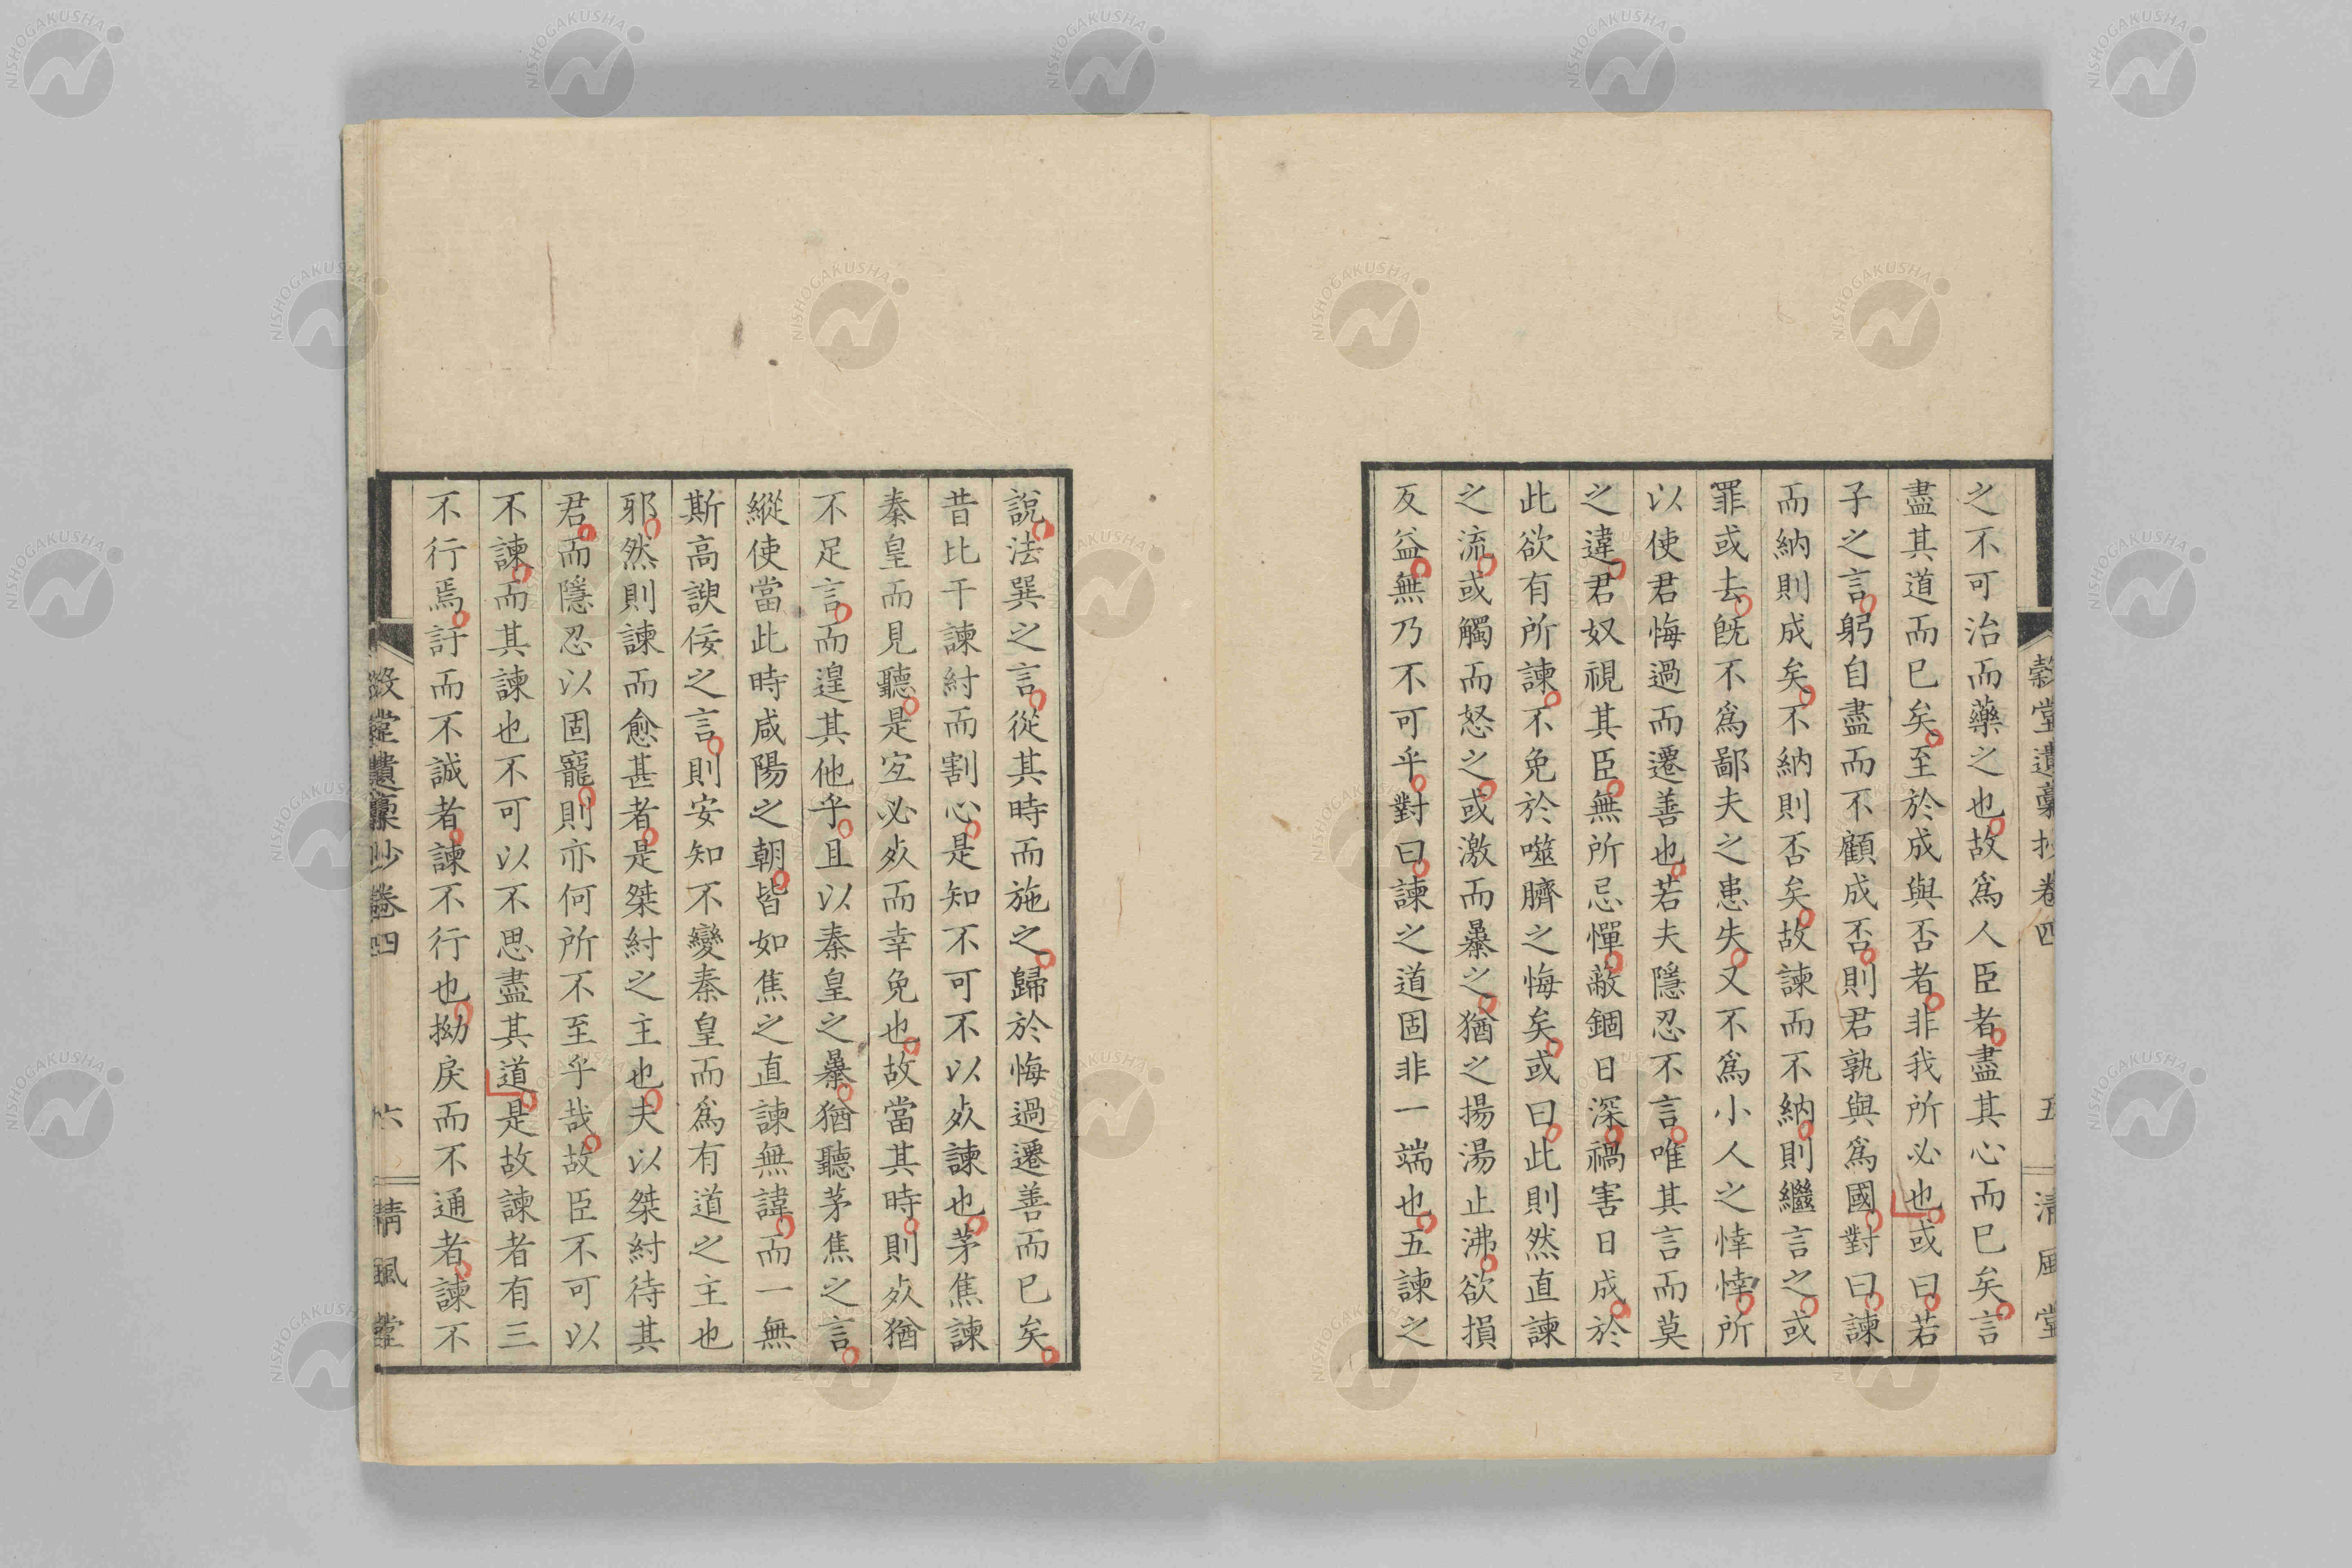 穀堂遺稾抄卷四 五 清風堂
之不可治而藥之也故爲人臣者盡其心而已矣言
盡其道而已矣至於成與否者非我所必也或曰若
子之言躬自盡而不顧成否則君孰與爲國對曰諫
而納則成矣不納則否矣故諫而不納則繼言之或
罪或去旣不爲鄙夫之患失又不爲小人之悻悻所
以使君悔過而遷善也若夫隱忍不言唯其言而莫
之違君奴視其臣無所忌憚敵錮日深禍害日成於
此欲有所諫不免於噬臍之悔矣或曰此則然直諫
之流或觸而怒之或激而暴之猶之揚湯止沸欲損
反益無乃不可乎對曰諫之道固非一端也五諫之
說法巽之言從其時而施之歸於悔過遷善而已矣
昔比干諫紂而割心是知不可不以㱁諫也茅焦諫
秦皇而見聽是宜必㱁而幸免也故當其時則㱁猶
不足言而遑其他乎且以秦皇之暴猶聽茅焦之言
縱使當此時咸陽之朝皆如焦之直諫無諱而一無
斯高諛佞之言則安知不變秦皇而爲有道之主也
邪然則諫而愈甚者是桀紂之主也夫以桀紂待其
君而隱忍以固寵則亦何所不至乎哉故臣不可以
不諫而其諫也不可以不思盡其道是故諫者有三
不行焉訐而不誠者諫不行也拗戾而不通者諫不
穀堂遺稾抄卷四 六 清風堂
NISHOGAKUSHA